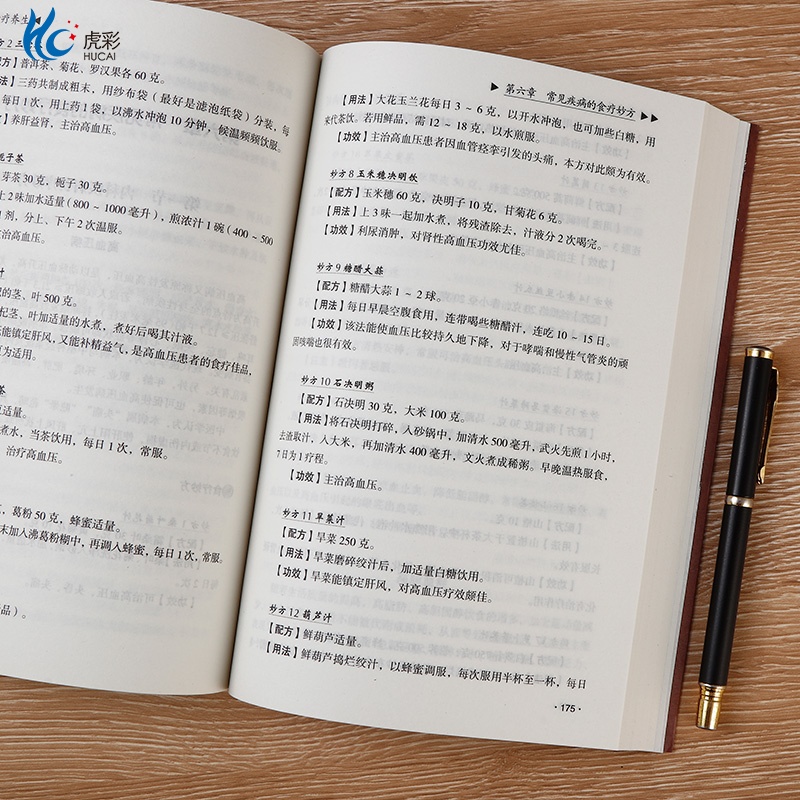 虎彩
HUCAI
疗养生
妙方 2 三
】普洱茶、菊花、罗汉果各 60 克。
】三药共制成粗末，用纱布袋（最好是滤泡纸袋）分装，每
每日1次，用上药1袋，以沸水冲泡 10 分钟，候温频频饮服。
】养肝益肾，主治高血压。
栀子茶
芽茶 30 克，栀子 30 克。
上2味加水适量（800 ~ 1000 毫升），煎浓汁 1 碗（400 ~ 500
1剂，分上、下午 2 次温服。
主治高血压。
汁
杞的茎、叶 500 克。
杞茎、叶加适量的水煮，煮好后喝其汁液。
既能镇定肝风，又能补精益气，是高血压患者的食疗佳品，
更为适用。
茶
适量。
煮水，当茶饮用，每日 1 次，常服。
治疗高血压。
，葛粉 50 克，蜂蜜适量。
末加入沸葛粉糊中，再调入蜂蜜，每日1次，常服。
品）。
▶ 第六章 常见疾病的食疗妙方 ▶▶
【用法】大花玉兰花每日 3 ~ 6 克，以开水冲泡，也可加些白糖，用
来代茶饮。若用鲜品，需 12 ~ 18 克，以水煎服。
【功效】主治高血压患者因血管痉挛引发的头痛，本方对此颇为有效。
妙方 8 玉米穗决明饮
【配方】玉米穗 60 克，决明子 10 克，甘菊花 6 克。
【用法】上 3 味一起加水煮，将残渣除去，汁液分 2 次喝完。
【功效】利尿消肿，对肾性高血压功效尤佳。
妙方 9 糖醋大蒜
【配方】糖醋大蒜 1 ~ 2 球。
【用法】每日早晨空腹食用，连带喝些糖醋汁，连吃 10 ~ 15 日。
【功效】该法能使血压比较持久地下降，对于哮喘和慢性气管炎的顽
固咳喘也很有效。
妙方 10 石决明粥
【配方】石决明 30 克，大米 100 克。
【用法】将石决明打碎，入砂锅中，加清水 500 毫升，武火先煎 1 小时，
去渣取汁，入大米，再加清水 400 毫升，文火煮成稀粥。早晚温热服食，
7 日为 1 疗程。
【功效】主治高血压。
妙方 11 旱菜汁
【配方】旱菜 250 克。
【用法】旱菜磨碎绞汁后，加适量白糖饮用。
【功效】旱菜能镇定肝风，对高血压疗效颇佳。
妙方 12 葫芦汁
【配方】鲜葫芦适量。
【用法】鲜葫芦捣烂绞汁，以蜂蜜调服，每次服用半杯至一杯，每日
· 175 ·